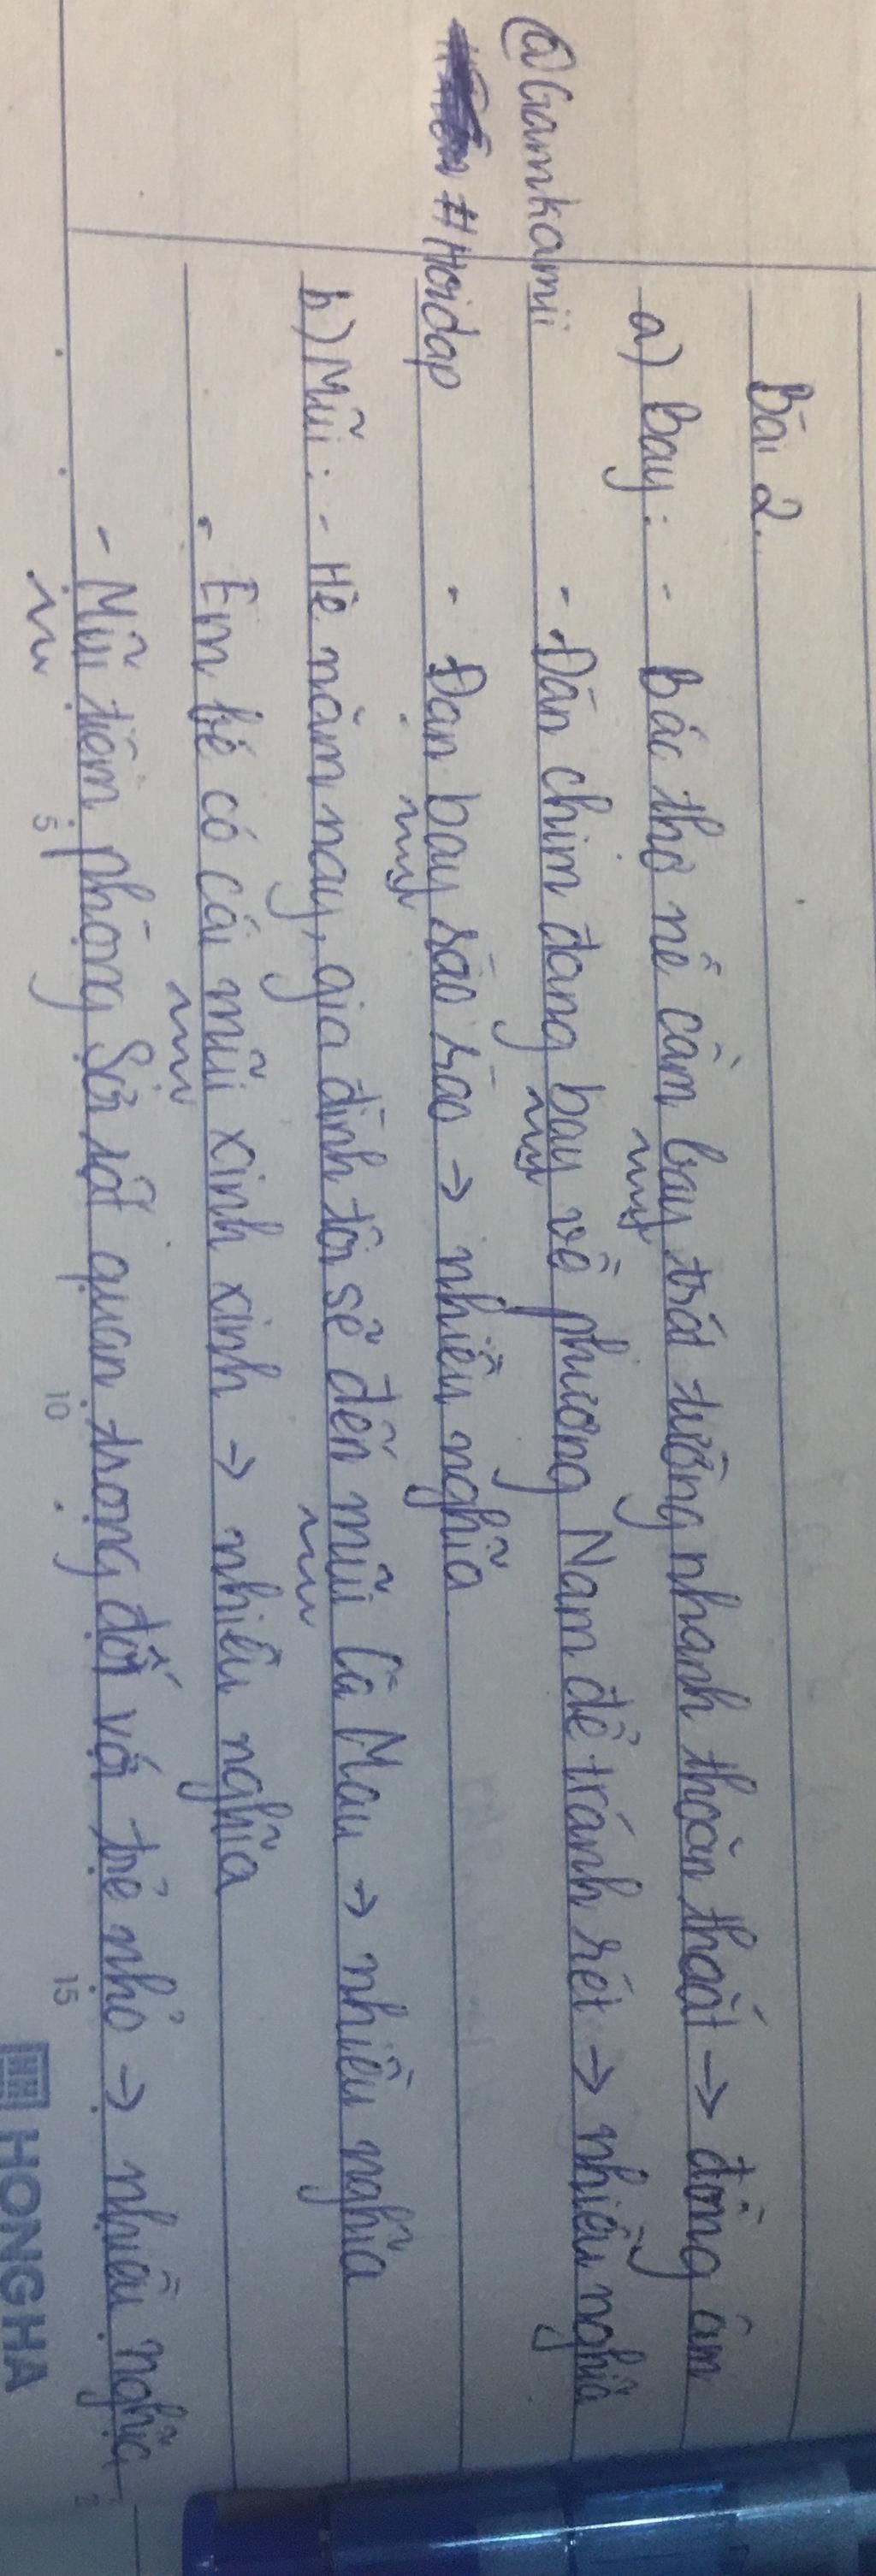 Bài 2.
a) Bay: - Bác thợ nề cầm bay trát tường nhanh thoăn thoắt → đồng âm
@Gamkamii - Đàn chim đang bay về phương Nam để tránh rét → nhiều nghĩa
#Hoidap - Đạn bay rào rào → nhiều nghĩa
b) Mũi: - Hè năm nay, gia đình tôi sẽ đến mũi Cà Mau → nhiều nghĩa
- Em bé có cái mũi xinh xinh → nhiều nghĩa
- Mũi tiêm phòng Sởi rất quan trọng đối với trẻ nhỏ → nhiều nghĩa
5 10 15
HONG HA